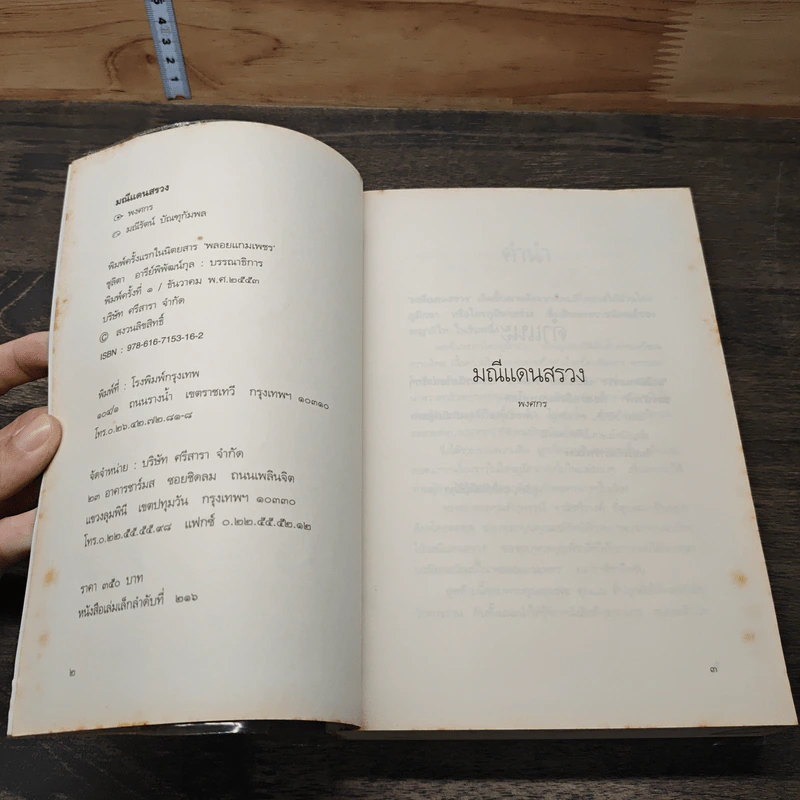 5
4
3
2
1
มณีแดนสรวง
พงศกร
มณีรัตน์ บัณฑุกัมพล
พิมพ์ครั้งแรกในนิตยสาร "พลอยแกมเพชร"
ชุลิตา อารีย์พิพัฒน์กุล : บรรณาธิการ
พิมพ์ครั้งที่ ๑ / ธันวาคม พ.ศ.๒๕๕๓
บริษัท ศรีสารา จำกัด
© สงวนลิขสิทธิ์
ISBN : 978-616-7153-16-2
พิมพ์ที่ : โรงพิมพ์กรุงเทพ
๑๐๔/๑ ถนนรางน้ำ เขตราชเทวี กรุงเทพฯ ๑๐๓๑๐
โทร.๐.๒๖.๔๒.๗๒.๘๑-๘
จัดจำหน่าย : บริษัท ศรีสารา จำกัด
๒๓ อาคารชาร์มส ซอยชิดลม ถนนเพลินจิต
แขวงลุมพินี เขตปทุมวัน กรุงเทพฯ ๑๐๓๓๐
โทร.๐.๒๒.๕๕.๕๕.๙๘ แฟกซ์ ๐.๒๒.๕๕.๕๒.๑๒
ราคา ๓๕๐ บาท
หนังสือเล่มเล็กลำดับที่ ๒๑๖
๒
มณีแดนสรวง
พงศกร
๓